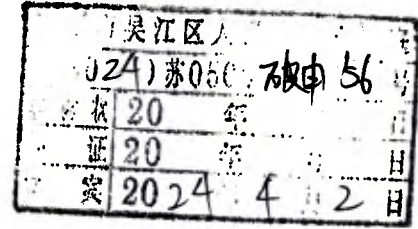 吴江区人
024)苏050 破申 56 号
收 20 年 日
证 20 年 月 日
实 2024 4 月 2 日